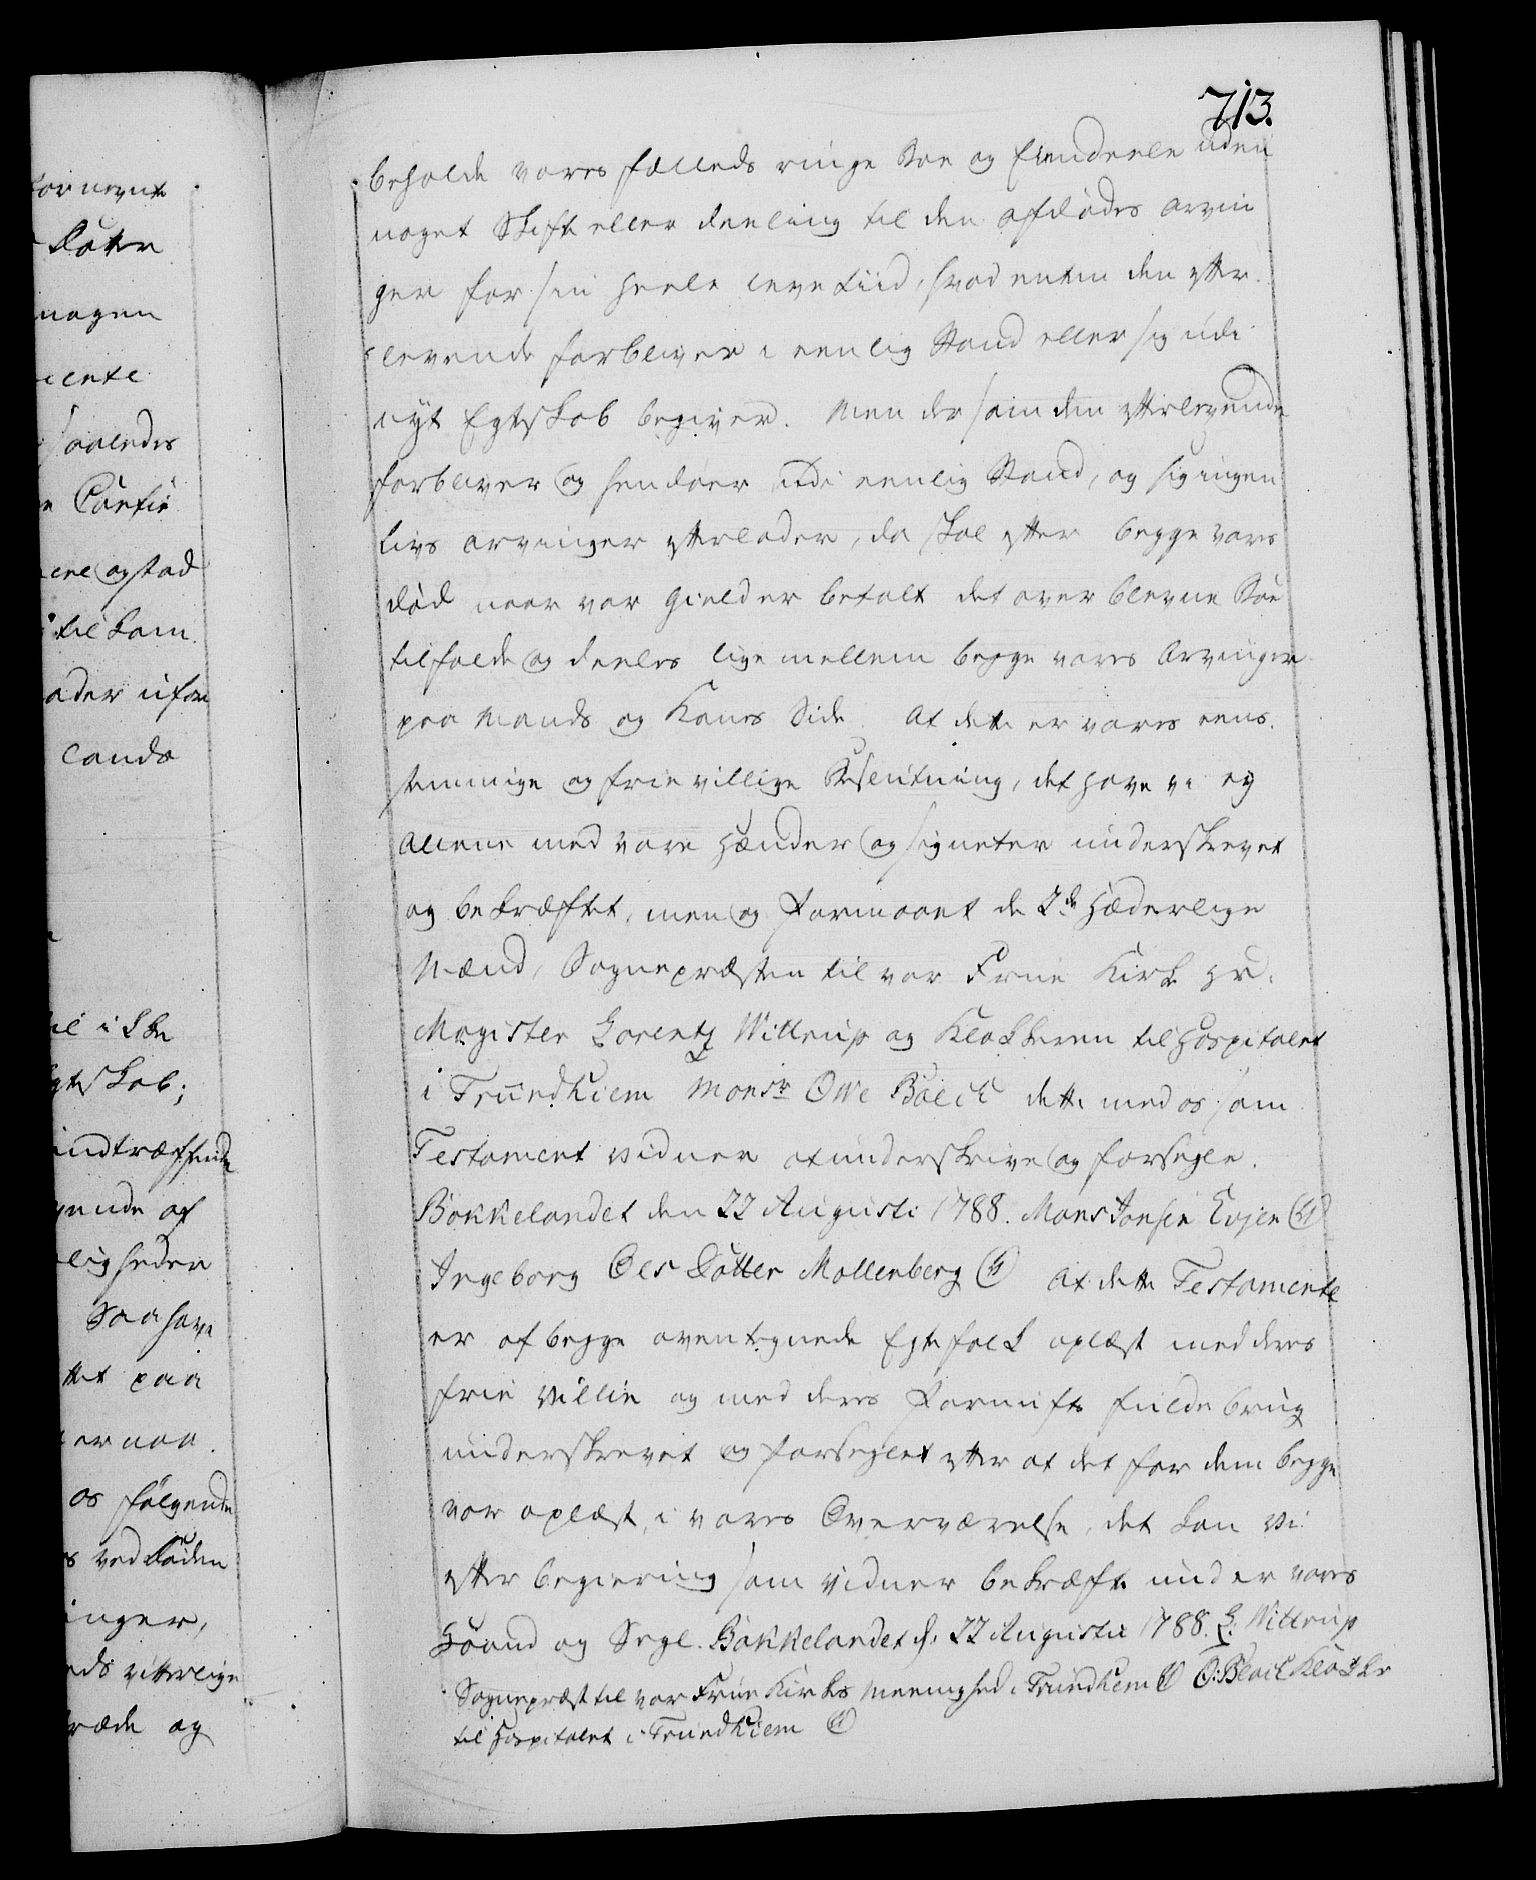 713.
beholde vores fælleds ringe Boe og Eiendeele uden
noget Skifte eller deeling til den afdødes arvin
ger for sin heele levetiid, hvad enten den efter
levende forbliver i eenlig Stand eller sig udi
nyt Egteskab begiver. Men dersom den efterlevende
forbliver og hendøer udi eenlig Stand, og sig ingen
livs arvinger efterlader, da skal efter begge vores
død naar vor Gield er betalt det overblevne Boe
tilfalde og deeles lige mellem begge vores Arvinger
paa Mands og Kones Side. At dette er vores eens
stemmige og frie villige Beslutning, det have vi ey
alleene med vore Hænder og Signeter underskrevet
og bekræftet, men og formaaet de 2de Hæderlige
Mænd, Sognepræsten til vor Frue Kirke Hr.
Magister Lorentz Wittrup og Klokkeren til Hospitalet
i Trundhiem Monsr Owe Bleck dette med os som
Testament vidner at underskrive og forsegle.
Bakkelandet den 22 Augusti 1788. Mons Jonsen Evjen
Ingeborg Oles Dotter Mollenberg At dette Testamente
er af begge oventegnede Egtefolk oplæst med deres
frie Villie og med deres Fornufts fulde brug
underskrevet og forseglet efter at det for dem begge
var oplæst, i vores Overværelse, det kan vi
efter begiering som Vidner bekræfte under vores
Haand og Segl. Bakkelandet d: 22 Augustii 1788. L: Wittrup
Sognepræst til vor Frue Kirkes Meenighed i Trundhiem O: Bleck Klokker
til Hospitalet i Trundhiem